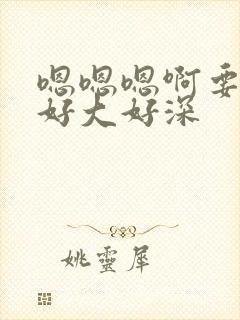 嗯嗯嗯啊要
好大好深
姚靈犀